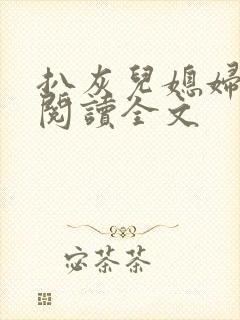 扒灰兒媳婦
閱讀全文
宓茶茶